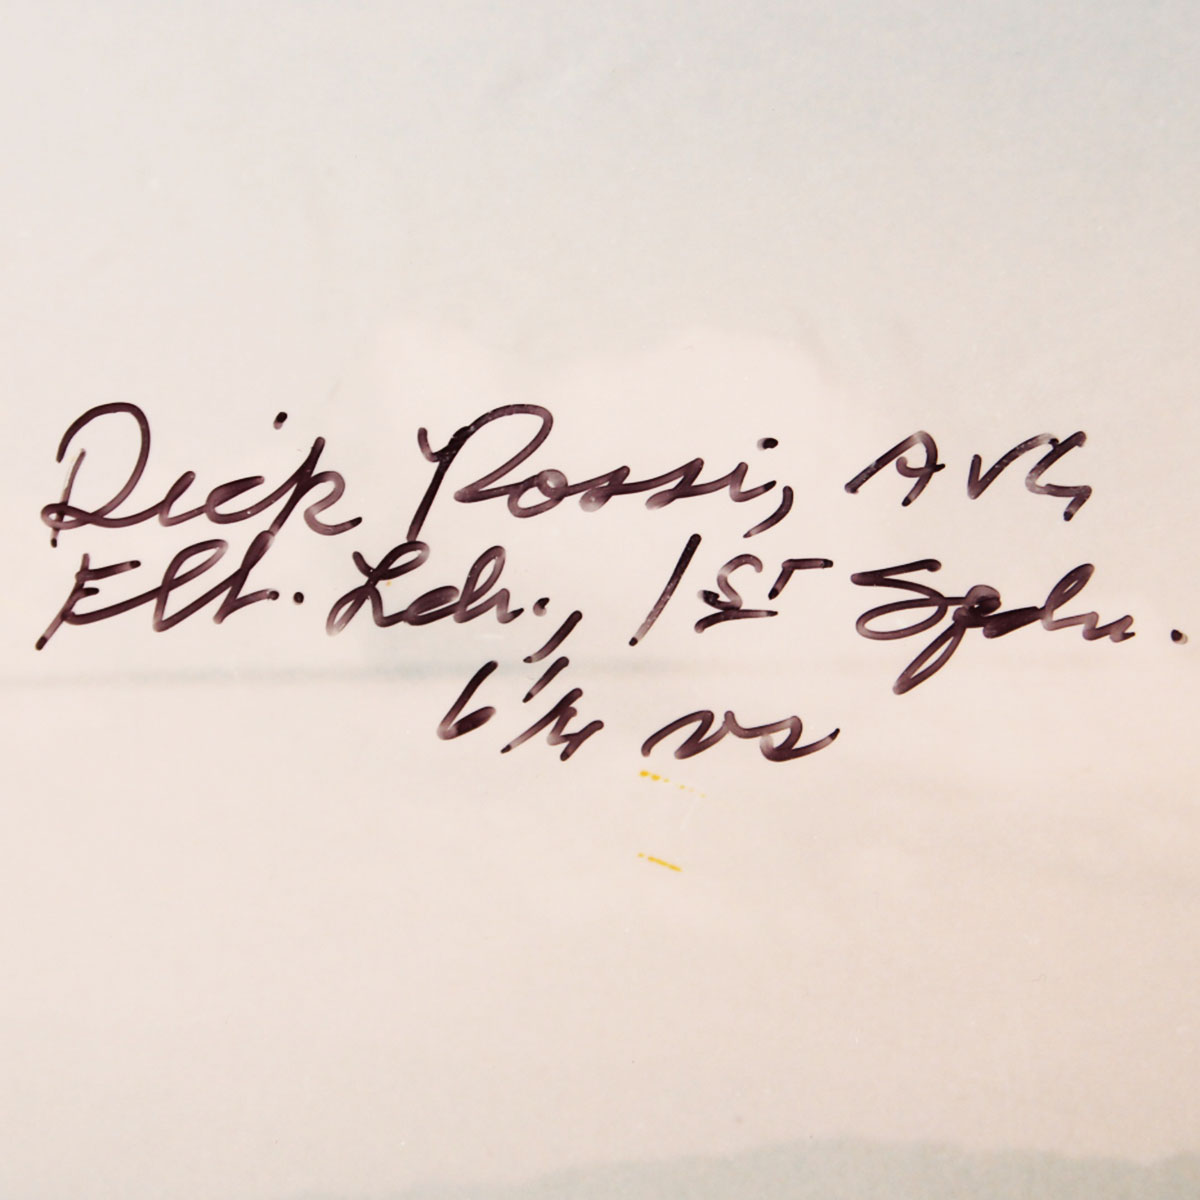 Dick Rossi, AVG
Flt. Ldr., 1st Sqdn.
6 1/4 vs